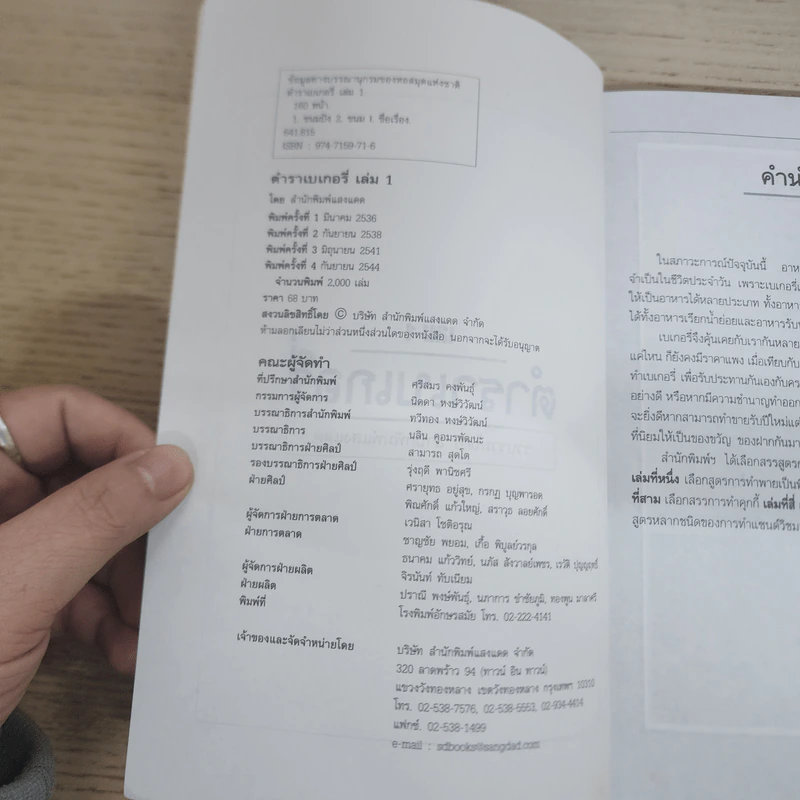 ข้อมูลทางบรรณานุกรมของหอสมุดแห่งชาติ
ตำราเบเกอรี่ เล่ม 1
160 หน้า
1. ขนมปัง 2. ขนม I. ชื่อเรื่อง
641.815
ISBN : 974-7159-71-6
ตำราเบเกอรี่ เล่ม 1
โดย สำนักพิมพ์แสงแดด
พิมพ์ครั้งที่ 1 มีนาคม 2536
พิมพ์ครั้งที่ 2 กันยายน 2538
พิมพ์ครั้งที่ 3 มิถุนายน 2541
พิมพ์ครั้งที่ 4 กันยายน 2544
จำนวนพิมพ์ 2,000 เล่ม
ราคา 68 บาท
สงวนลิขสิทธิ์โดย © บริษัท สำนักพิมพ์แสงแดด จำกัด
ห้ามลอกเลียนไม่ว่าส่วนหนึ่งส่วนใดของหนังสือ นอกจากจะได้รับอนุญาต
คณะผู้จัดทำ
ที่ปรึกษาสำนักพิมพ์ ศรีสมร คงพันธุ์
กรรมการผู้จัดการ นิดดา หงษ์วิวัฒน์
บรรณาธิการสำนักพิมพ์ ทวีทอง หงษ์วิวัฒน์
บรรณาธิการ นลิน คูอมรพัฒนะ
บรรณาธิการฝ่ายศิลป์ สามารถ สุดโต
รองบรรณาธิการฝ่ายศิลป์ รุ่งฤดี พานิชศรี
ฝ่ายศิลป์ ศรายุทธ อยู่สุข, กรกฎ บุญพารอด
พิณศักดิ์ แก้วใหญ่, สราวุธ ลอยศักดิ์
ผู้จัดการฝ่ายการตลาด เวนิสา โชติอรุณ
ฝ่ายการตลาด ชาญชัย พยอม, เกื้อ พิบูลย์วรกุล
ธนาคม แก้ววิทย์, นภัส
ผู้จัดการฝ่ายผลิต จิรนันท์ ทับเนียม
ฝ่ายผลิต ปราณี พงษ์พันธุ์, นภาการ ชำชัยภูมิ, ทองพูน มาลาศรี
พิมพ์ที่ โรงพิมพ์อักษรสมัย โทร. 02-222-4141
เจ้าของและจัดจำหน่ายโดย บริษัท สำนักพิมพ์แสงแดด จำกัด
320 ลาดพร้าว 94 (ทาวน์ อิน ทาวน์)
แขวงวังทองหลาง เขตวังทองหลาง กรุงเทพฯ 10310
โทร. 02-538-7576, 02-538-5553, 02-934-4414
แฟกซ์. 02-538-1499
e-mail : sdbooks@sangdad.com
คำนำ
ในสภาวะการณ์ปัจจุบันนี้
จำเป็นในชีวิตประจำวัน
ให้เป็นอาหารได้หลายประเภท
ได้ทั้งอาหารเรียกน้ำย่อยและอาหาร
เบเกอรี่จึงคุ้นเคยกับเรากันหลาย
แค่ไหน ก็ยังคงมีราคาแพง เมื่อเทียบกับ
ทำเบเกอรี่ เพื่อรับประทานกันเองกับ
อย่างดี หรือหากมีความชำนาญทำออก
จะยิ่งดีหากสามารถทำขายรับปีใหม่
ที่นิยมให้เป็นของขวัญ ของฝากกัน
สำนักพิมพ์ฯ ได้เลือกสรรสูตร
เล่มที่หนึ่ง เลือกสูตรการทำพายเป็น
ที่สาม เลือกสรรการทำคุกกี้ เล่มที่สี่
สูตรหลากชนิดของการทำแซนด์วิช